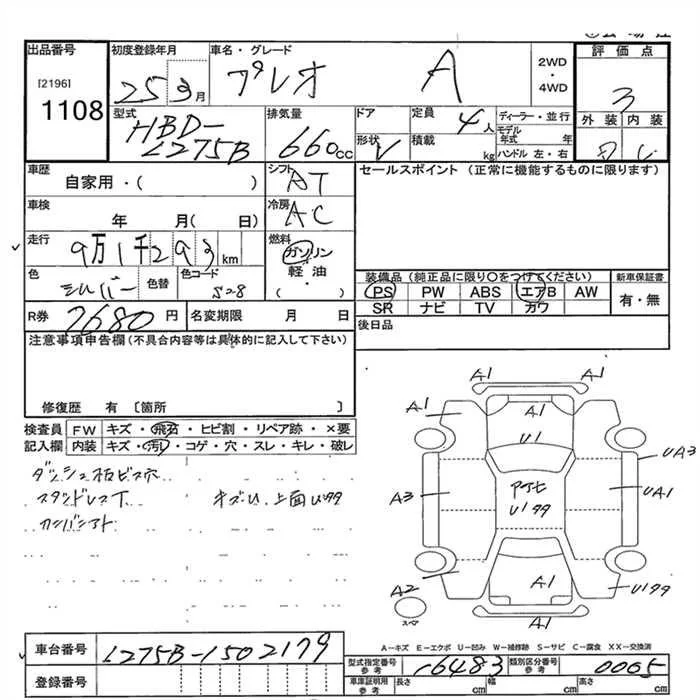 出品番号
[2196]
1108
初度登録年月
25 3月
車名・グレード
プレオ A
2WD
・
4WD
評価点
3
外装 内装
型式
HBD-
L275B
排気量
660cc
ドア
形状 V
定員 4人
積載 kg
ディーラー・並行
モデル
年式 年
ハンドル 左・右
車歴
自家用・( )
シフト
AT
セールスポイント (正常に機能するものに限ります)
車検
年 月( 日)
冷房
AC
走行
9万1千293km
燃料
ガソリン
軽油・
( )
色
シルバー
色替
色コード
S28
装備品(純正品に限り○をつけてください)
PS PW ABS エアB AW
SR ナビ TV カワ
新車保証書
有・無
R券 7680円
名変期限 月 日
後日品
注意事項申告欄(不具合内容等は具体的に記入して下さい)
修復歴 有 〔箇所 〕
検査員 FW キズ・飛石・ヒビ割・リペア跡・×要
記入欄 内装 キズ・汚・コゲ・穴・スレ・キレ・破レ
ダッシュ板ビス穴
スタッドレス下
上面
A1 A1
A1 A1 A1
U1
UA3
A3 UA1
A2 A1
スペア
A-キズ E-エクボ U-凹み W-補修跡 S-サビ C-腐食 XX-交換済
車台番号 L275B-1502179
登録番号
型式指定番号
参考 16483
類別区分番号
参考 0005
車庫証明用
参考
長さ cm 幅 cm 高さ cm